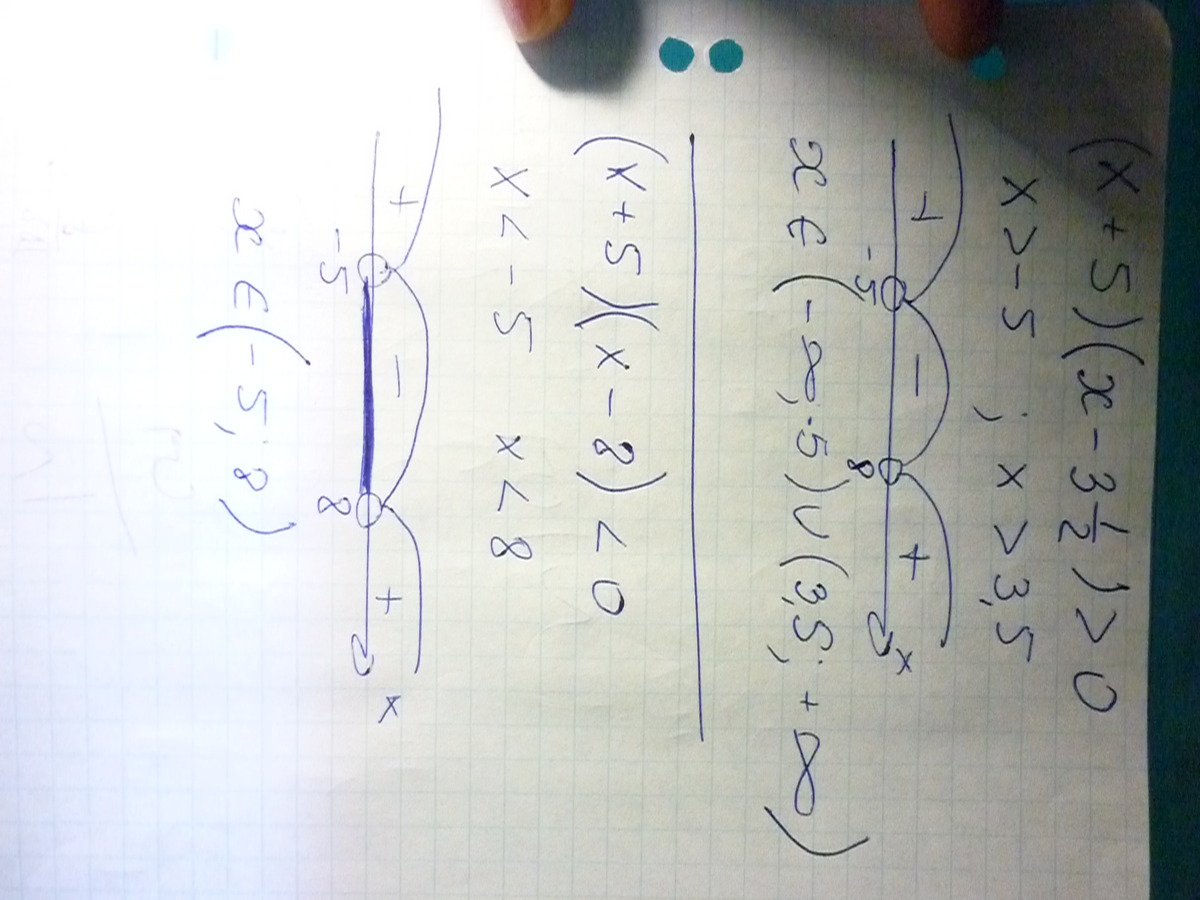 (x + 5)(x - 3 1/2) > 0
x > -5 ; x > 3,5
+ - +
-5 8 x
x ∈ (-∞; -5) ∪ (3,5; +∞)
(x + 5)(x - 8) < 0
x < -5 x < 8
+ - +
-5 8 x
x ∈ (-5; 8)